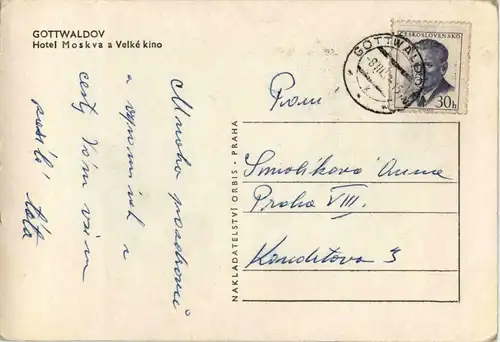 GOTTWALDOV
Hotel Moskva a Velké kino
Mnoho pozdravů
a vzpomínek z
cesty Vám všem
posílá
táta
NAKLADATELSTVÍ ORBIS - PRAHA
GOTTWALDOV
ČESKOSLOVENSKO
30h
Paní
Smolíková Anna
Praha VIII.
3